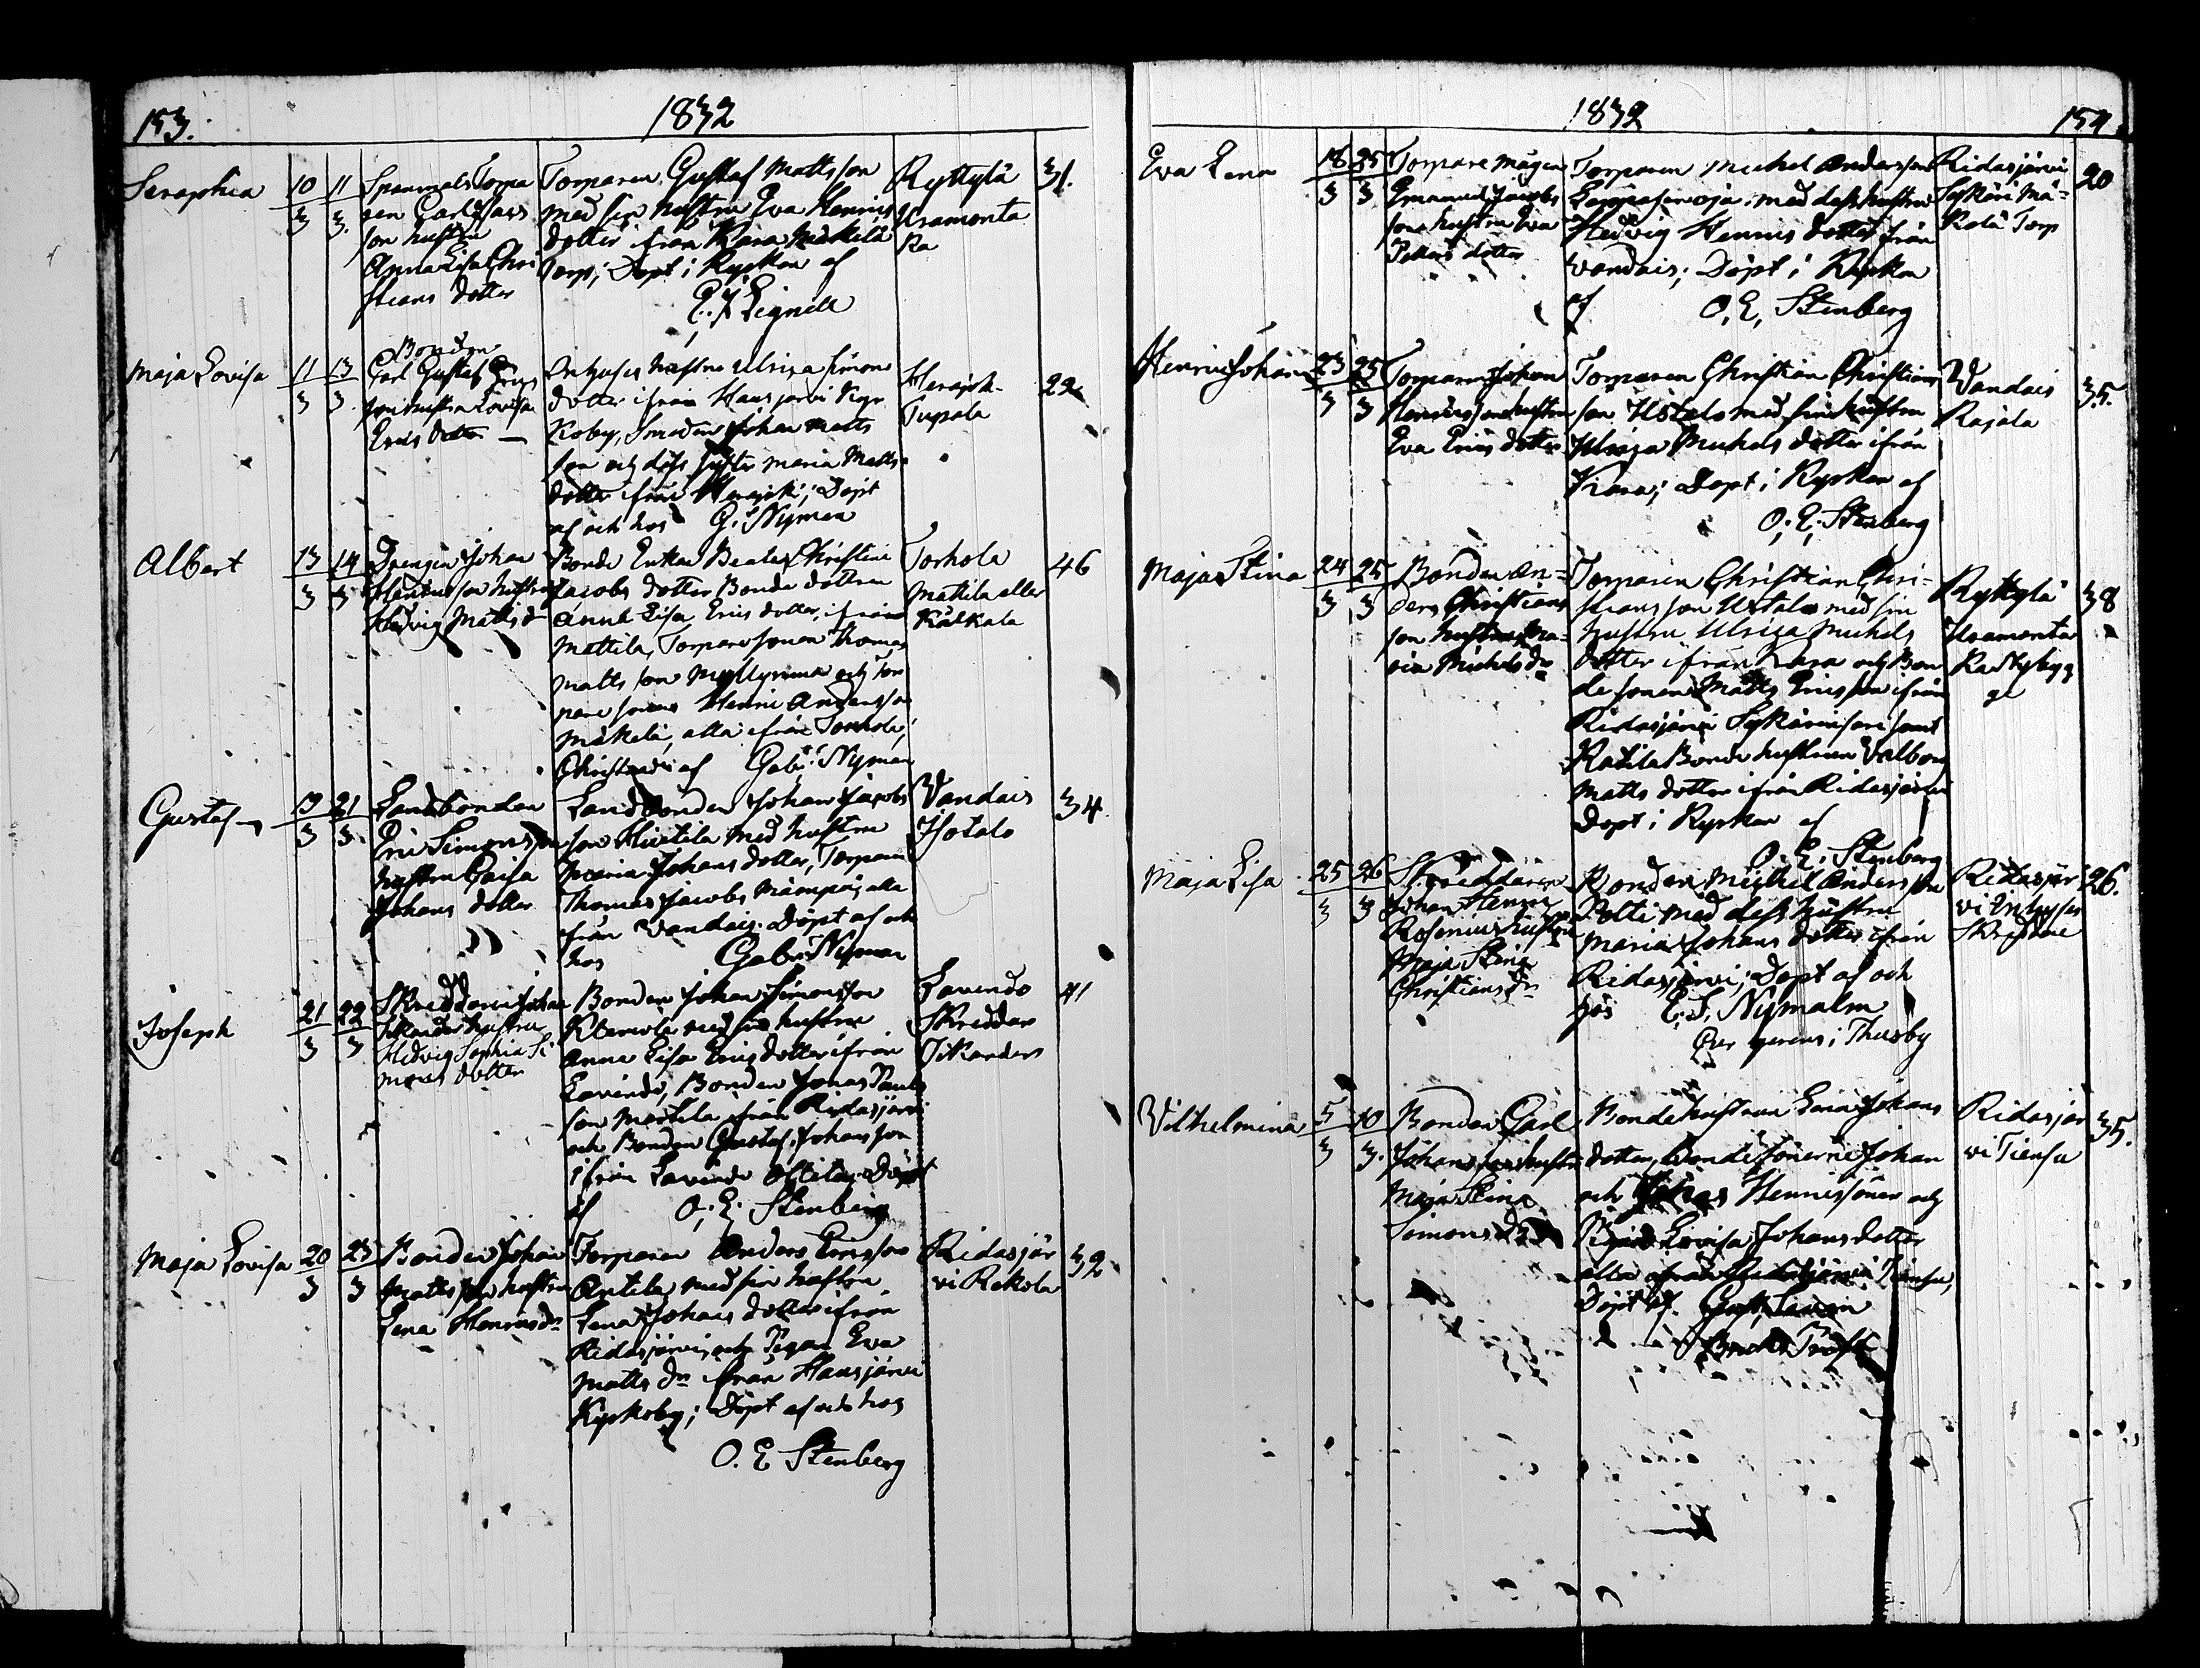 153.
1832
Seraphia
10/3
11/3
Spanmåls Torpa
ren Carl Isacs
son hustru
Anna Lisa Chri
stians dotter
Torparen Gustaf Mattsson
med sin hustru Eva Henrics
dotter ifrån Kara Mäkelä
Torp; Döpt i Kyrkan af
C. J. Lignell
Ryttylä
Uramonta
ka
31.
Maja Lovisa
11/3
13/3
Bonden
Carl Gustaf Erics
son hustru Lovisa
Erics dotter
Inhyses hustru Ulrica Simons
dotter ifrån Hausjärvi Kyr
koby, Smeden Johan Matts
son och dess syster Maria Matts
dotter ifrån Herajoki; Döpt
af och hos G. Nyman
Herajok
Tupala
22
Albert
13/3
14/3
Drengen Johan
hustru
Hedvig Matts d
Bonde Enkan Beata Christina
Jacobs dotter Bonde dottren
Anna Lisa Erics dotter, ifrån
Mattila, Torpare sonen Thomas
Matts son Myllynumma och Tor
pare sonen Henric Andersson
Mäkelä, alla ifrån Torhola,
af Gab. Nyman
Torhola
Mattila eller
Kälkälä
46
Gustaf
19/3
21/3
Landbonden
Eric Simonsson
hustru Caisa
Johans dotter
Landbonden Johan Jacobs
son Hiivtila med hustru
Maria Johans dotter, Torparen
Thomas Jacobs alla
från Vandais. Döpt af och
hos Gab. Nyman
Vandais
Isotalo
34.
Joseph
21/3
22/3
Skreddaren Johan
hustru
Hedvig Sophia Si
mons dotter
Bonden Johan Simonsson
Klemola med sin hustru
Anna Lisa Erics dotter ifrån
Lavindo, Bonden Jonas Pauls
son Mattila ifrån Ridasjärvi
och Bonden Gustaf Johansson
ifrån Lavindo Ollila; Döpt
af O. E. Stenberg
Lavindo
Skreddar
Sikanders
41
Maja Lovisa
20/3
23/3
Bonden Johan
Matts son hustru
Lena Henricsdr
Torparen Anders Ericsson
Antila med sin hustru
Lena Johans dotter ifrån
Ridasjärvi och Pigan Eva
Matts dr ifrån Hausjärvi
Kyrkoby; Döpt af och hos
O. E. Stenberg
Ridasjär
vi Rekola
32
1832
154.
Eva Lena
18/3
25/3
Torpare Mågen
Emanuel Jacobs
son hustru Eva
Petters dotter
Torparen Michel Andersson
Leppäsenoja med dess hustru
Hedvig Henrics dotter från
Vandais; Döpt i Kyrkan
af O. E. Stenberg
Ridasjärvi
Sykäri Mä-
kelä Torp
20
Henric Johan
23/3
25/3
Torparen Johan
Henricsson hustru
Eva Erics dotter
Torparen Christian Christians
son Ustalo med sin hustru
Ulrica Michels dotter ifrån
Kiara; Döpt i Kyrkan af
O. E. Stenberg
Vandais
Rajala
35.
Maja Stina
24/3
25/3
Bonden An-
ders Christians
son hustru Ma-
ria Michels dr
Torparen Christian Chri-
stians son Ustalo med sin
hustru Ulrica Michels
dotter ifrån Kara och Bon
de sonen Matts Ericsson ifrån
Ridasjärvi Sykäri samt
Katila Bonde hustrun Valborg
Matts dotter ifrån Ridasjärvi
Döpt i Kyrkan af
O. E. Stenberg
Ryttylä
Uramonta
ka Nybyg
ge
38
Maja Lisa
25/3
26/3
Skreddaren
Johan Henric
Rosenius hustru
Maja Stina
Christians dr
Bonden Michel Andersson
Rolli med dess hustru
Maria Johans dotter ifrån
Ridasjärvi; Döpt af och
hos E. S. Nymalm
i Thusby
Ridasjär
vi Inhyses
26.
Vilhelmina
5/3
10/3.
Bonden Carl
Johansson hustru
Maja Stina
Simons dr
Bondehustrun Lena Johans
dotter, Bondesönerne Johan
och Henrics söner och
Lovisa Johansdotter
alla ifrån Ridasjärvi Tiensu,
Döpt af
Ridasjär
vi Tiensu
35.